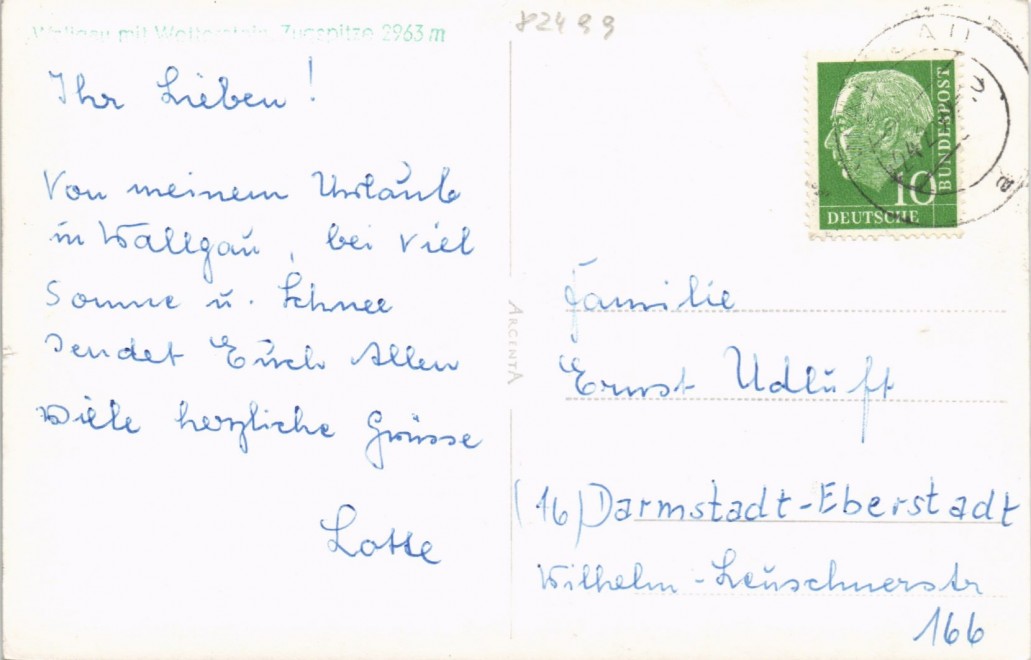 Wallgau mit Wetterstein, Zugspitze 2963 m
82499
Ihr Lieben!
Von meinem Urlaub
in Wallgau, bei viel
Sonne u. Schnee
sendet Euch Allen
Viele herzliche Grüsse
Lotte
ARGENTA
10
BUNDESPOST
DEUTSCHE
Familie
Ernst Udluft
(16) Darmstadt-Eberstadt
Wilhelm-Leuschnerstr
166